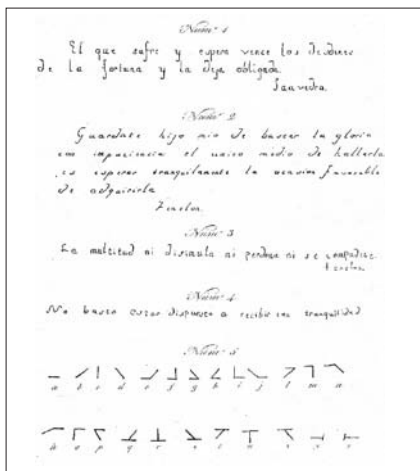 Num.º 1
El que sufre y espera vence los desdenes
de la fortuna y la deja obligada.
Saavedra.
Num.º 2
Guardate hijo mio de buscar la gloria
con impaciencia el unico medio de hallarla
es esperar tranquilamente la ocasion favorable
de adquirirla
Fenelon.
Num.º 3
La multitud ni disimula ni perdona ni se compadece
Num.º 4
No basta estar dispuesto a recibir con tranquilidad
Num.º 5
a b c d e f g h i j l m n